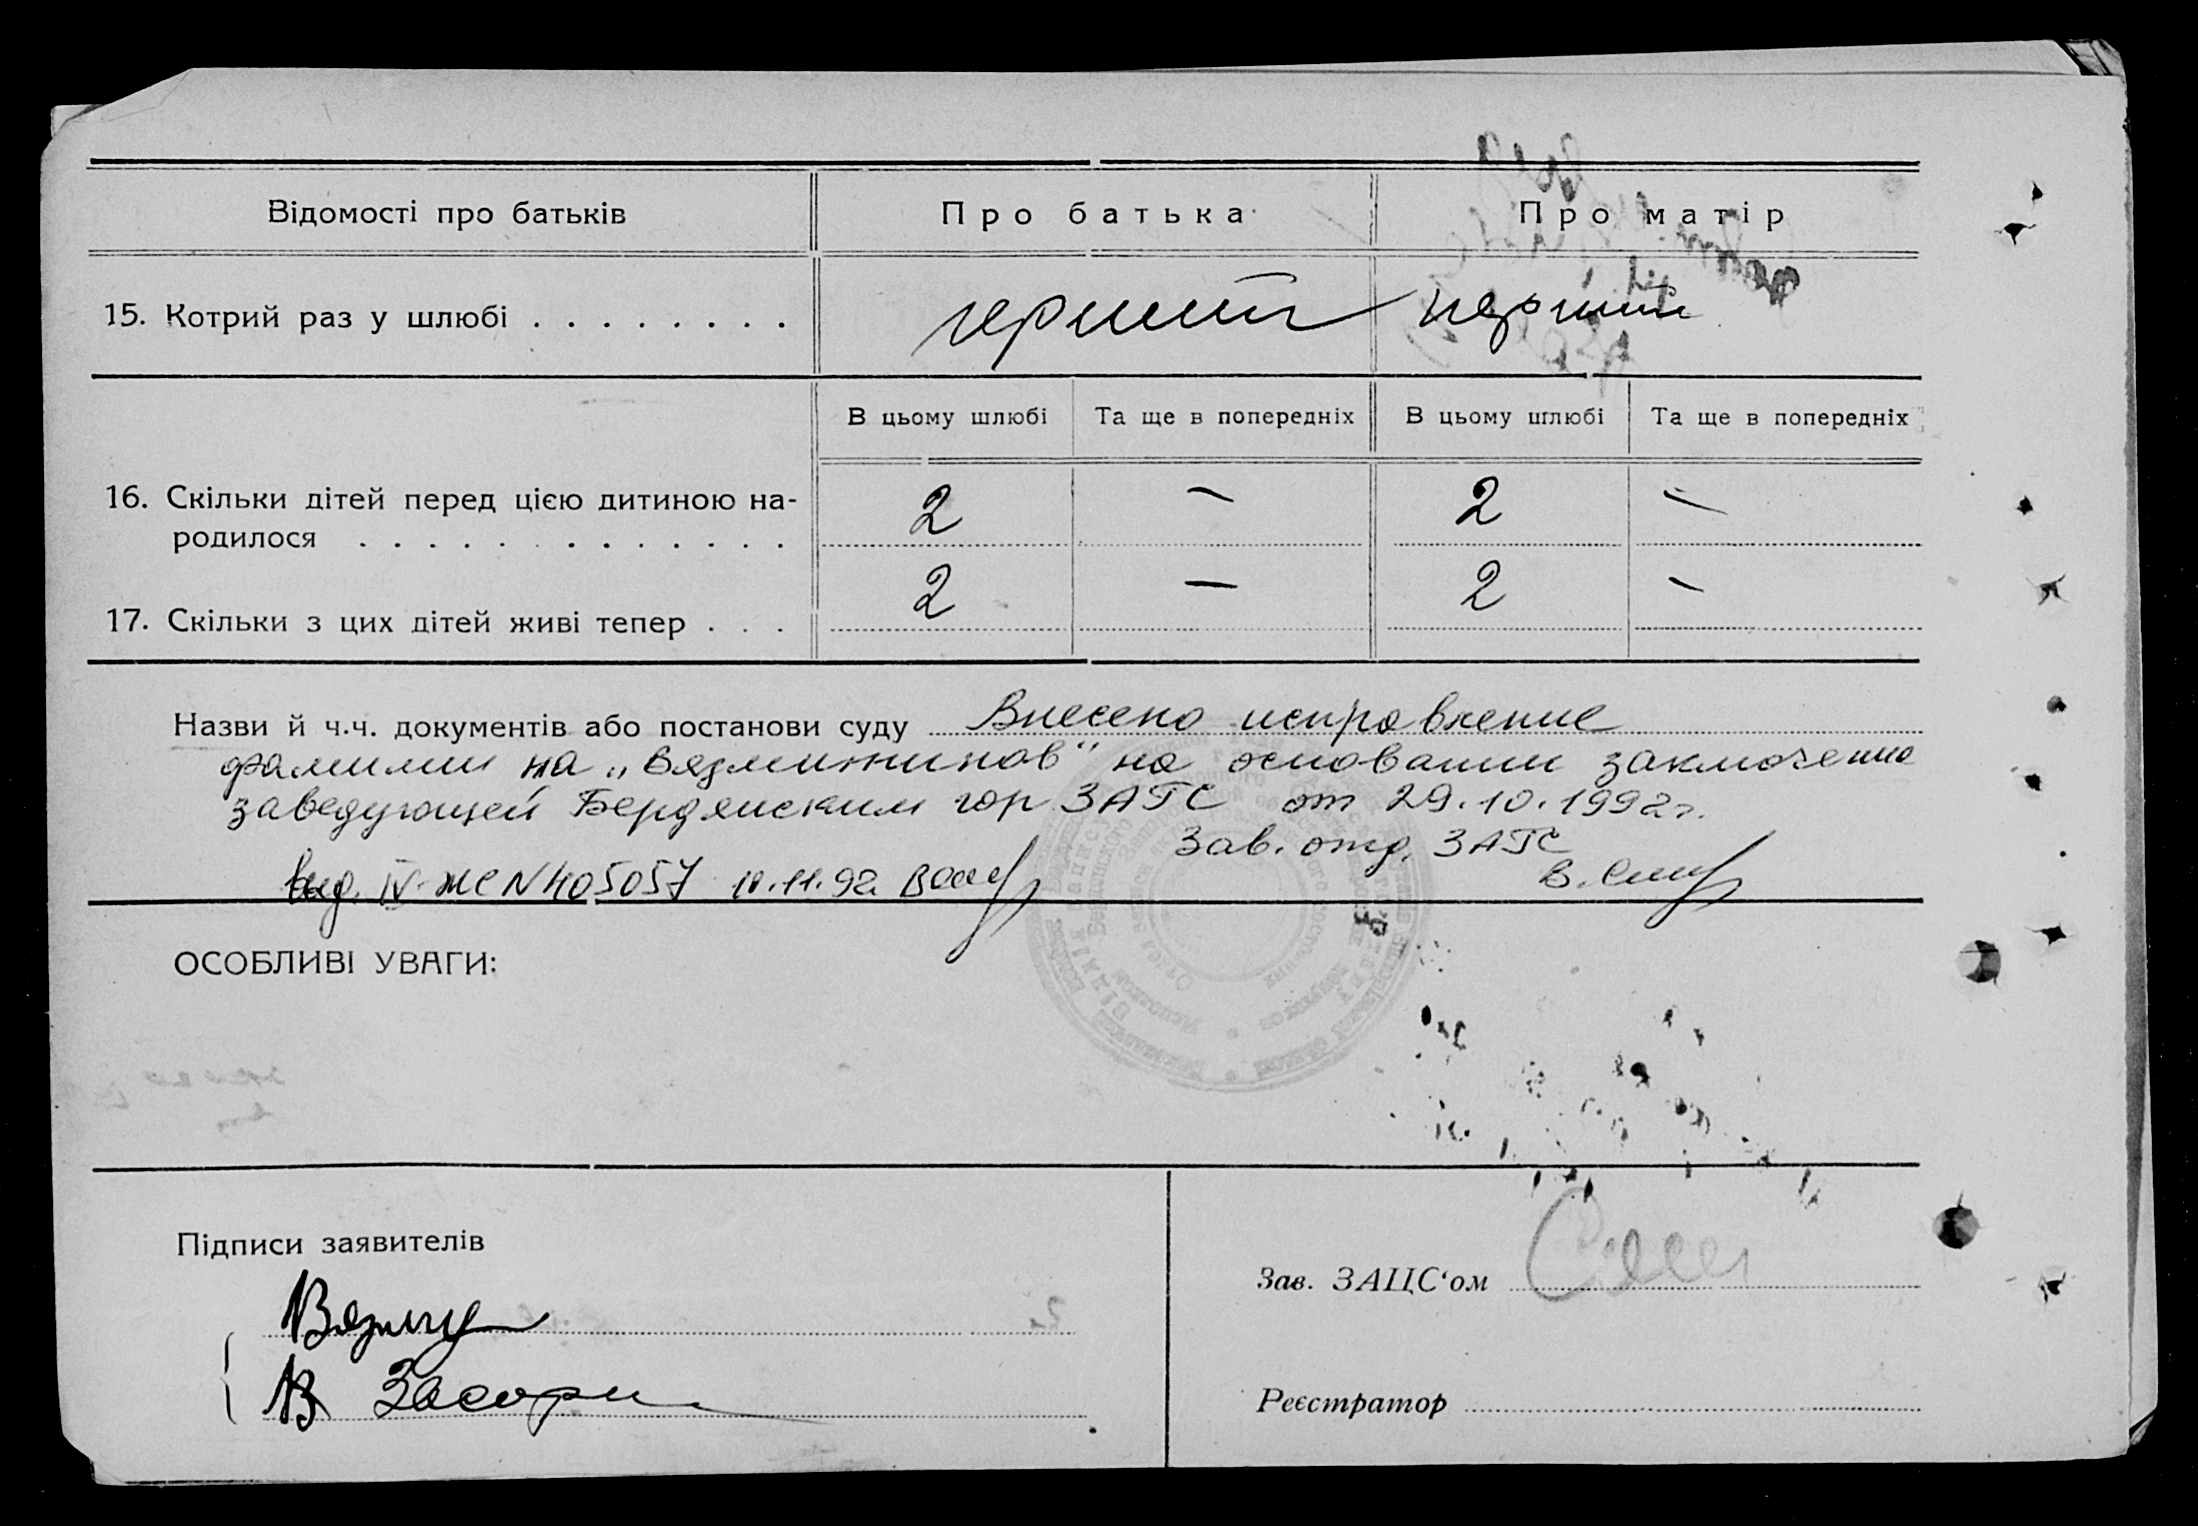 Відомості про батьків Про батька Про матір
15. Котрий раз у шлюбі . . . . . . . . перший перший
В цьому шлюбі Та ще в попередніх В цьому шлюбі Та ще в попередніх
16. Скільки дітей перед цією дитиною на- 2 — 2 —
родилося . . . . . . . . . . . . .
17. Скільки з цих дітей живі тепер . . . 2 — 2 —
Назви й ч.ч. документів або постанови суду Внесено исправление
фамилии на „Вязмитинов" на основании заключения
заведующей Бердянским гор ЗАГС от 29.10.1992г.
Зав. отд. ЗАГС
Выд. IV-ЖС N 405057 10.11.92
ОСОБЛИВІ УВАГИ:
Підписи заявителів
Зав. ЗАЦС‘ом
Реєстратор